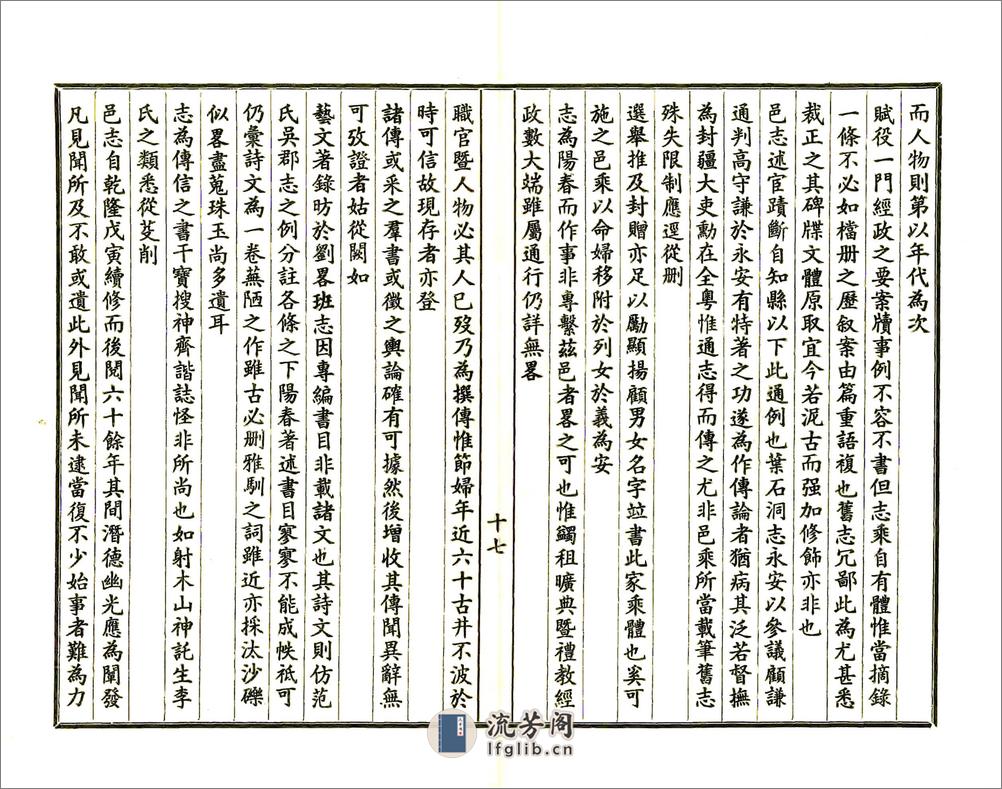 而人物則第以年代為次
賦役一門經政之要案牘事例不容不書但志乘自有體惟當摘錄
一條不必如檔册之歷叙案由篇重語複也舊志冗鄙此為尤甚悉
裁正之其碑牒文體原取宜今若泥古而强加修飾亦非也
邑志述宦蹟斷自知縣以下此通例也葉石洞志永安以參議顧謙
通判高守謙於永安有特著之功遂為作傳論者猶病其泛若督撫
為封疆大吏勳在全粵惟通志得而傳之尤非邑乘所當載筆舊志
殊失限制應逕從删
選舉推及封贈亦足以勵顯揚顧男女名字竝書此家乘體也奚可
施之邑乘以命婦移附於列女於義為安
志為陽春而作事非專繫茲邑者畧之可也惟蠲租曠典暨禮教經
政數大端雖屬通行仍詳無畧
十七
職官暨人物必其人已歿乃為撰傳惟節婦年近六十古井不波於
時可信故現存者亦登
諸傳或采之羣書或徵之輿論確有可據然後增收其傳聞異辭無
可攷證者姑從闕如
藝文著錄昉於劉畧班志因專編書目非載諸文也其詩文則仿范
氏吳郡志之例分註各條之下陽春著述書目寥寥不能成帙祗可
仍彙詩文為一卷蕪陋之作雖古必删雅馴之詞雖近亦採汰沙礫
似畧盡蒐珠玉尚多遺耳
志為傳信之書干寶搜神齊諧誌怪非所尚也如射木山神託生李
氏之類悉從芟削
邑志自乾隆戊寅續修而後閱六十餘年其間潛德幽光應為闡發
凡見聞所及不敢或遺此外見聞所未逮當復不少始事者難為力
流芳阁
lfglib.cn